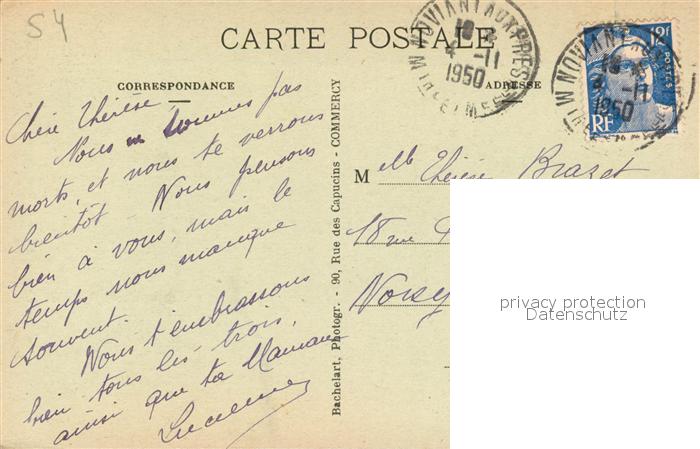 54
CARTE POSTALE
CORRESPONDANCE
ADRESSE
NOVIANT AUX PRES
18
4 -11
1950
12F
POSTES
RF
NOVIANT
18
4 -11
1950
Chère Thérèse
Nous ne sommes pas
morts, et nous te verrons
bientôt Nous pensons
bien à vous, mais le
temps nous manque
souvent.
Nous t'embrassons
bien tous les trois,
ainsi que ta Maman
Lucienne
Bachelart, Photogr. - 90, Rue des Capucins - COMMERCY
M elle Thérèse Brazet
18 rue
Noisy
privacy protection
Datenschutz